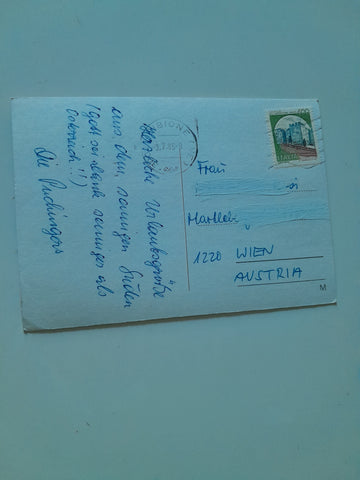 Herzliche Urlaubsgrüße
aus dem sonnigen Süden
(Gott sei Dank sonniger als
Österreich!!)
Die Puchingers
BIBIONE
ITALIA
Frau
1220 WIEN
AUSTRIA
M